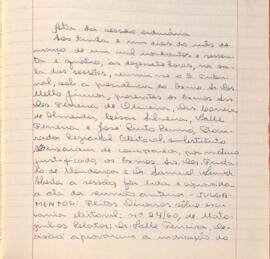 Ata da sessão ordinária
Aos trinta e um dias do mês de
março de mil novecentos e sessen-
ta e quatro, às dezessete horas, na sa-
la das sessões, reuniu-se o E. Tribu-
nal, sob a presidência do Exmo. Sr. Des.
Mello Júnior, presentes os Exmos. Srs.
Des. Ferreira de Oliveira, Drs.
de Almeida, Silveira, Valle
Ferreira e José Pinto Renno, Procu-
rador Regional Eleitoral, substituto.
Deixaram de comparecer, por motivo
justificado, os Exmos. Srs. Des.
de Mendonça e Dr. Samuel
Aberta a sessão, foi lida e aprovada
a ata da reunião anterior. - JULGA-
MENTOS: Feitos Diversos sôbre es-
crivania eleitoral: nº 24/60, de Mato-
zinhos. Relator: Dr. Valle Ferreira. De-
cisão: aprovaram a indicação do